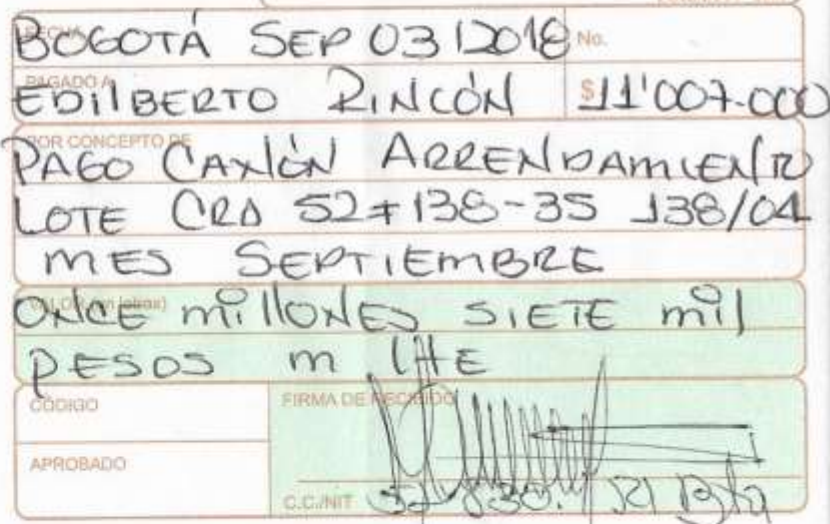 FECHA BOGOTÁ SEP 03 / 2018 No.
PAGADO A EDILBERTO RINCÓN $11'007.000
POR CONCEPTO DE
PAGO CANON ARRENDAMIENTO
LOTE CRA 52 # 138-35 138/04
MES SEPTIEMBRE
VALOR (en letras)
ONCE millONES SIETE mil
PESOS m
CÓDIGO
FIRMA DE RECIBIDO
APROBADO
C.C./NIT